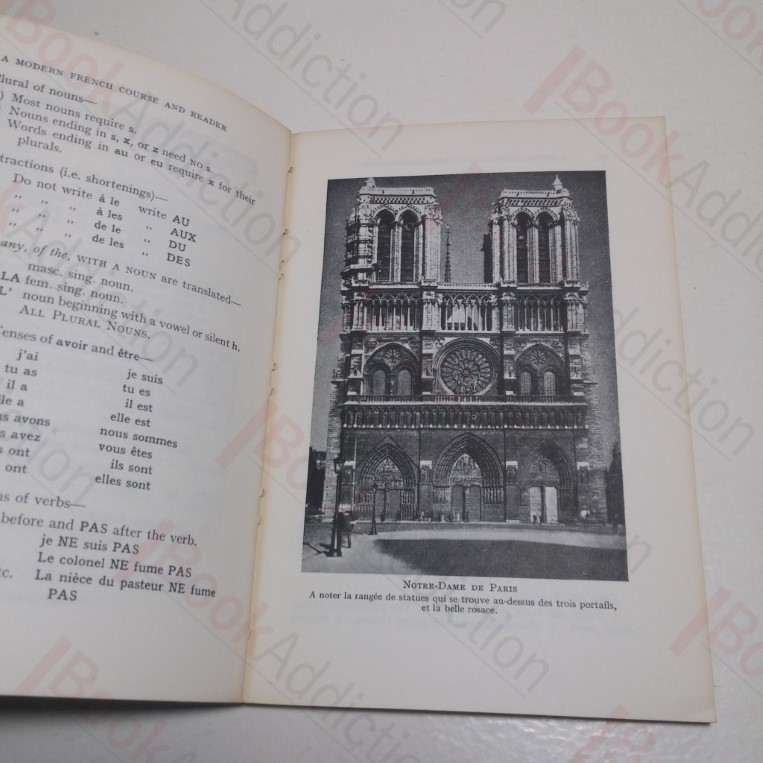 A MODERN FRENCH COURSE AND READER
Plural of nouns—
) Most nouns require s.
Nouns ending in s, x, or z need NO s.
Words ending in au or eu require x for their
plurals.
tractions (i.e. shortenings)—
Do not write à le write AU
" " " à les " AUX
" " " de le " DU
" " " de les " DES
any, of the, WITH A NOUN are translated—
masc. sing. noun.
LA fem. sing. noun.
L' noun beginning with a vowel or silent h.
ALL PLURAL NOUNS.
Tenses of avoir and être—
j'ai je suis
tu as tu es
il a il est
lle a elle est
us avons nous sommes
s avez vous êtes
ont ils sont
ont elles sont
ns of verbs—
before and PAS after the verb.
je NE suis PAS
Le colonel NE fume PAS
etc. La nièce du pasteur NE fume
PAS
NOTRE-DAME DE PARIS
A noter la rangée de statues qui se trouve au-dessus des trois portails,
et la belle rosace.
BookAddiction